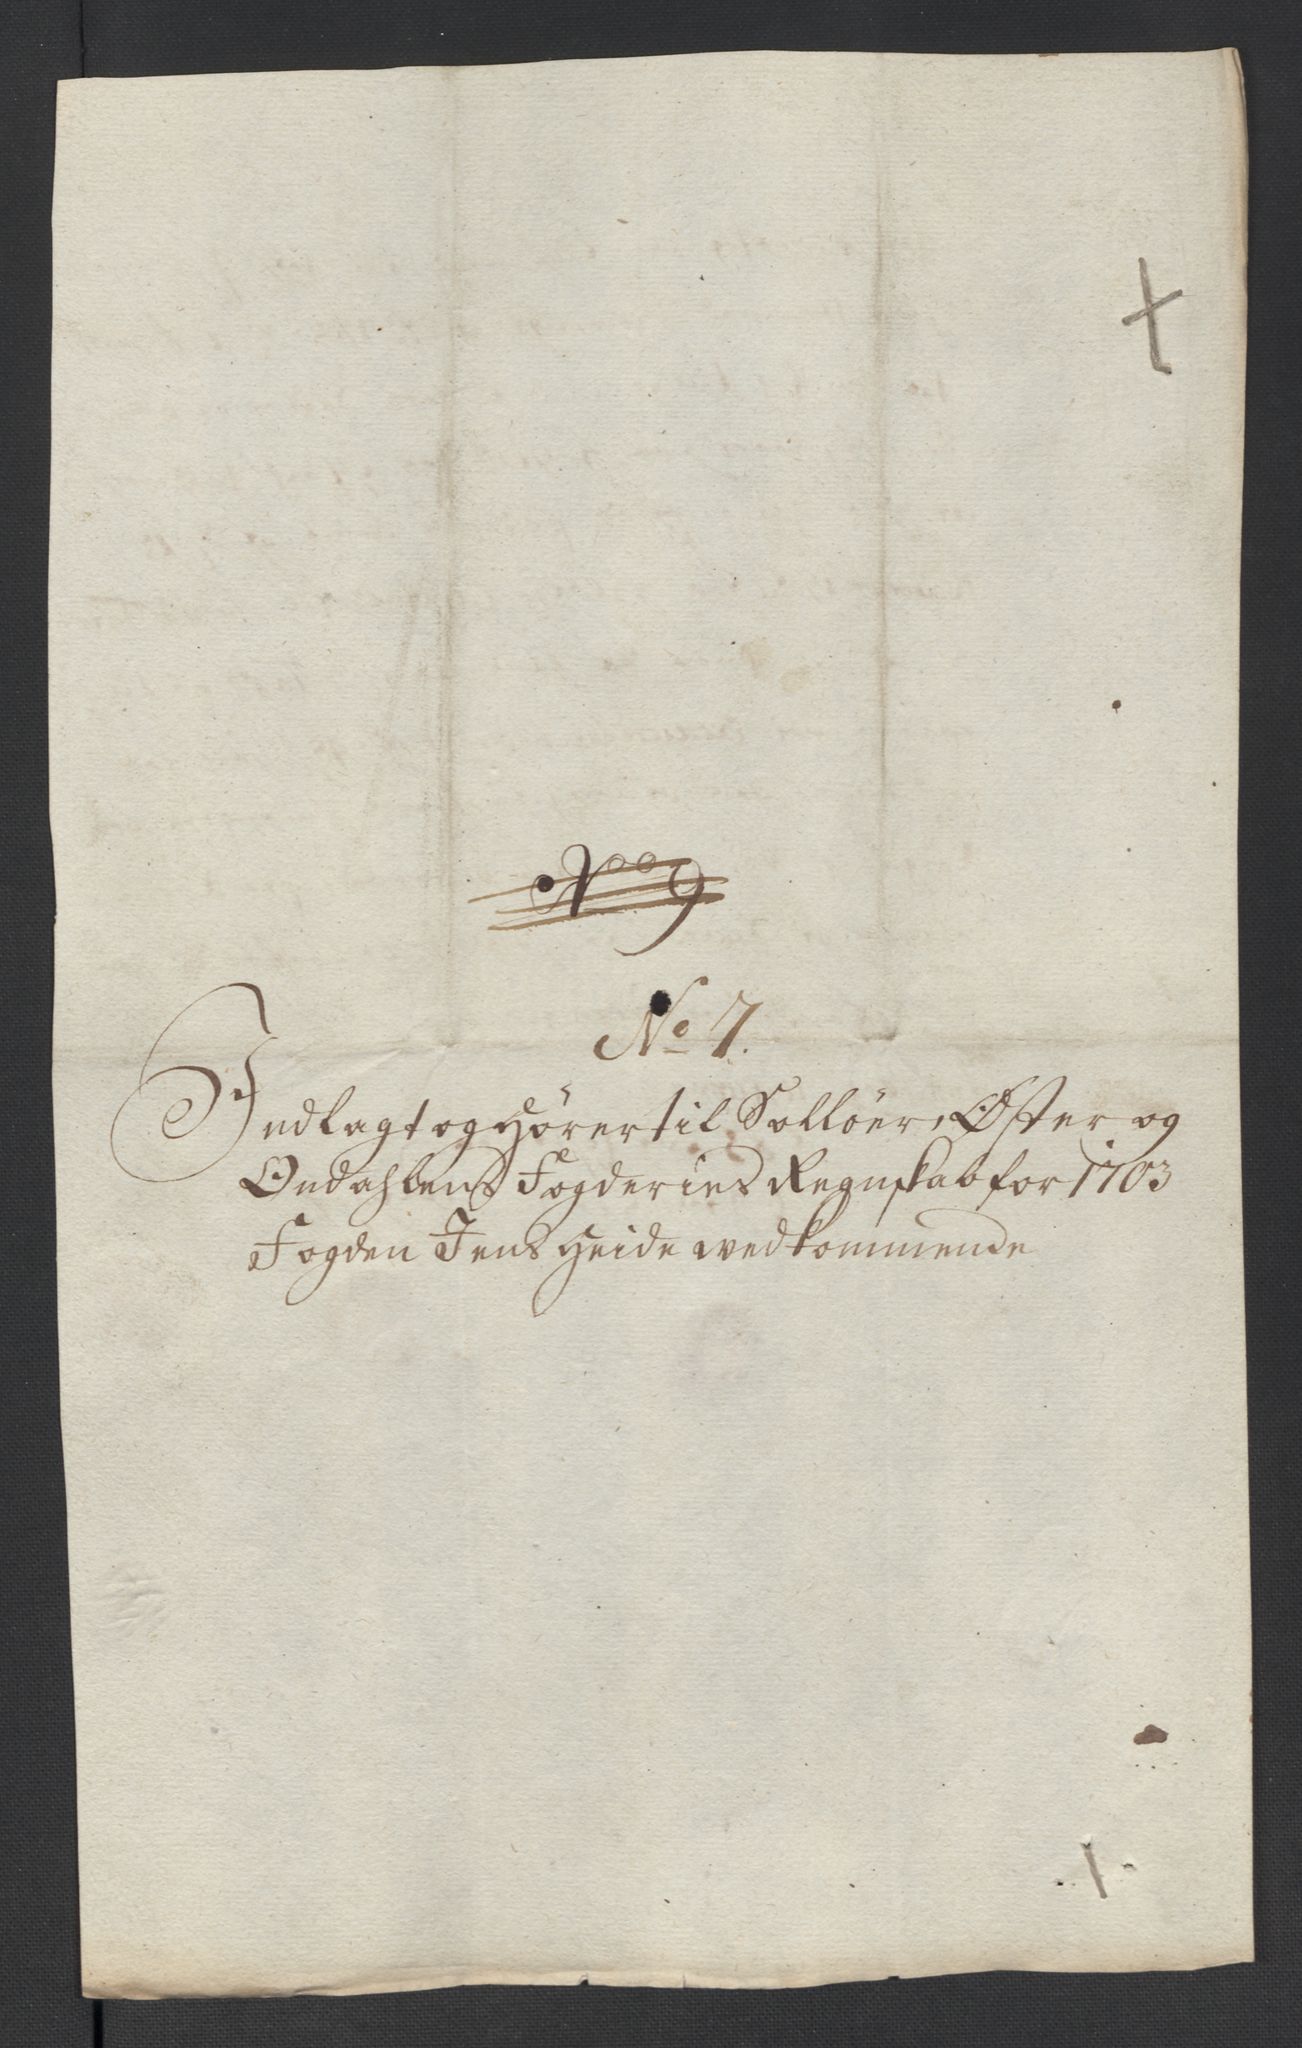 No 9
No 7.
Indlagt og Hörer til Sollöer, Øster og
Ondahlens Fogderies Regnskab for 1703
Fogden Jens Heide wedkommende